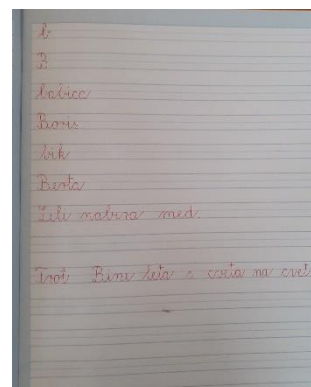 b
B
babica
Boris
bik
Berta
nabira med.
Trot Bine leta s cveta na cvet